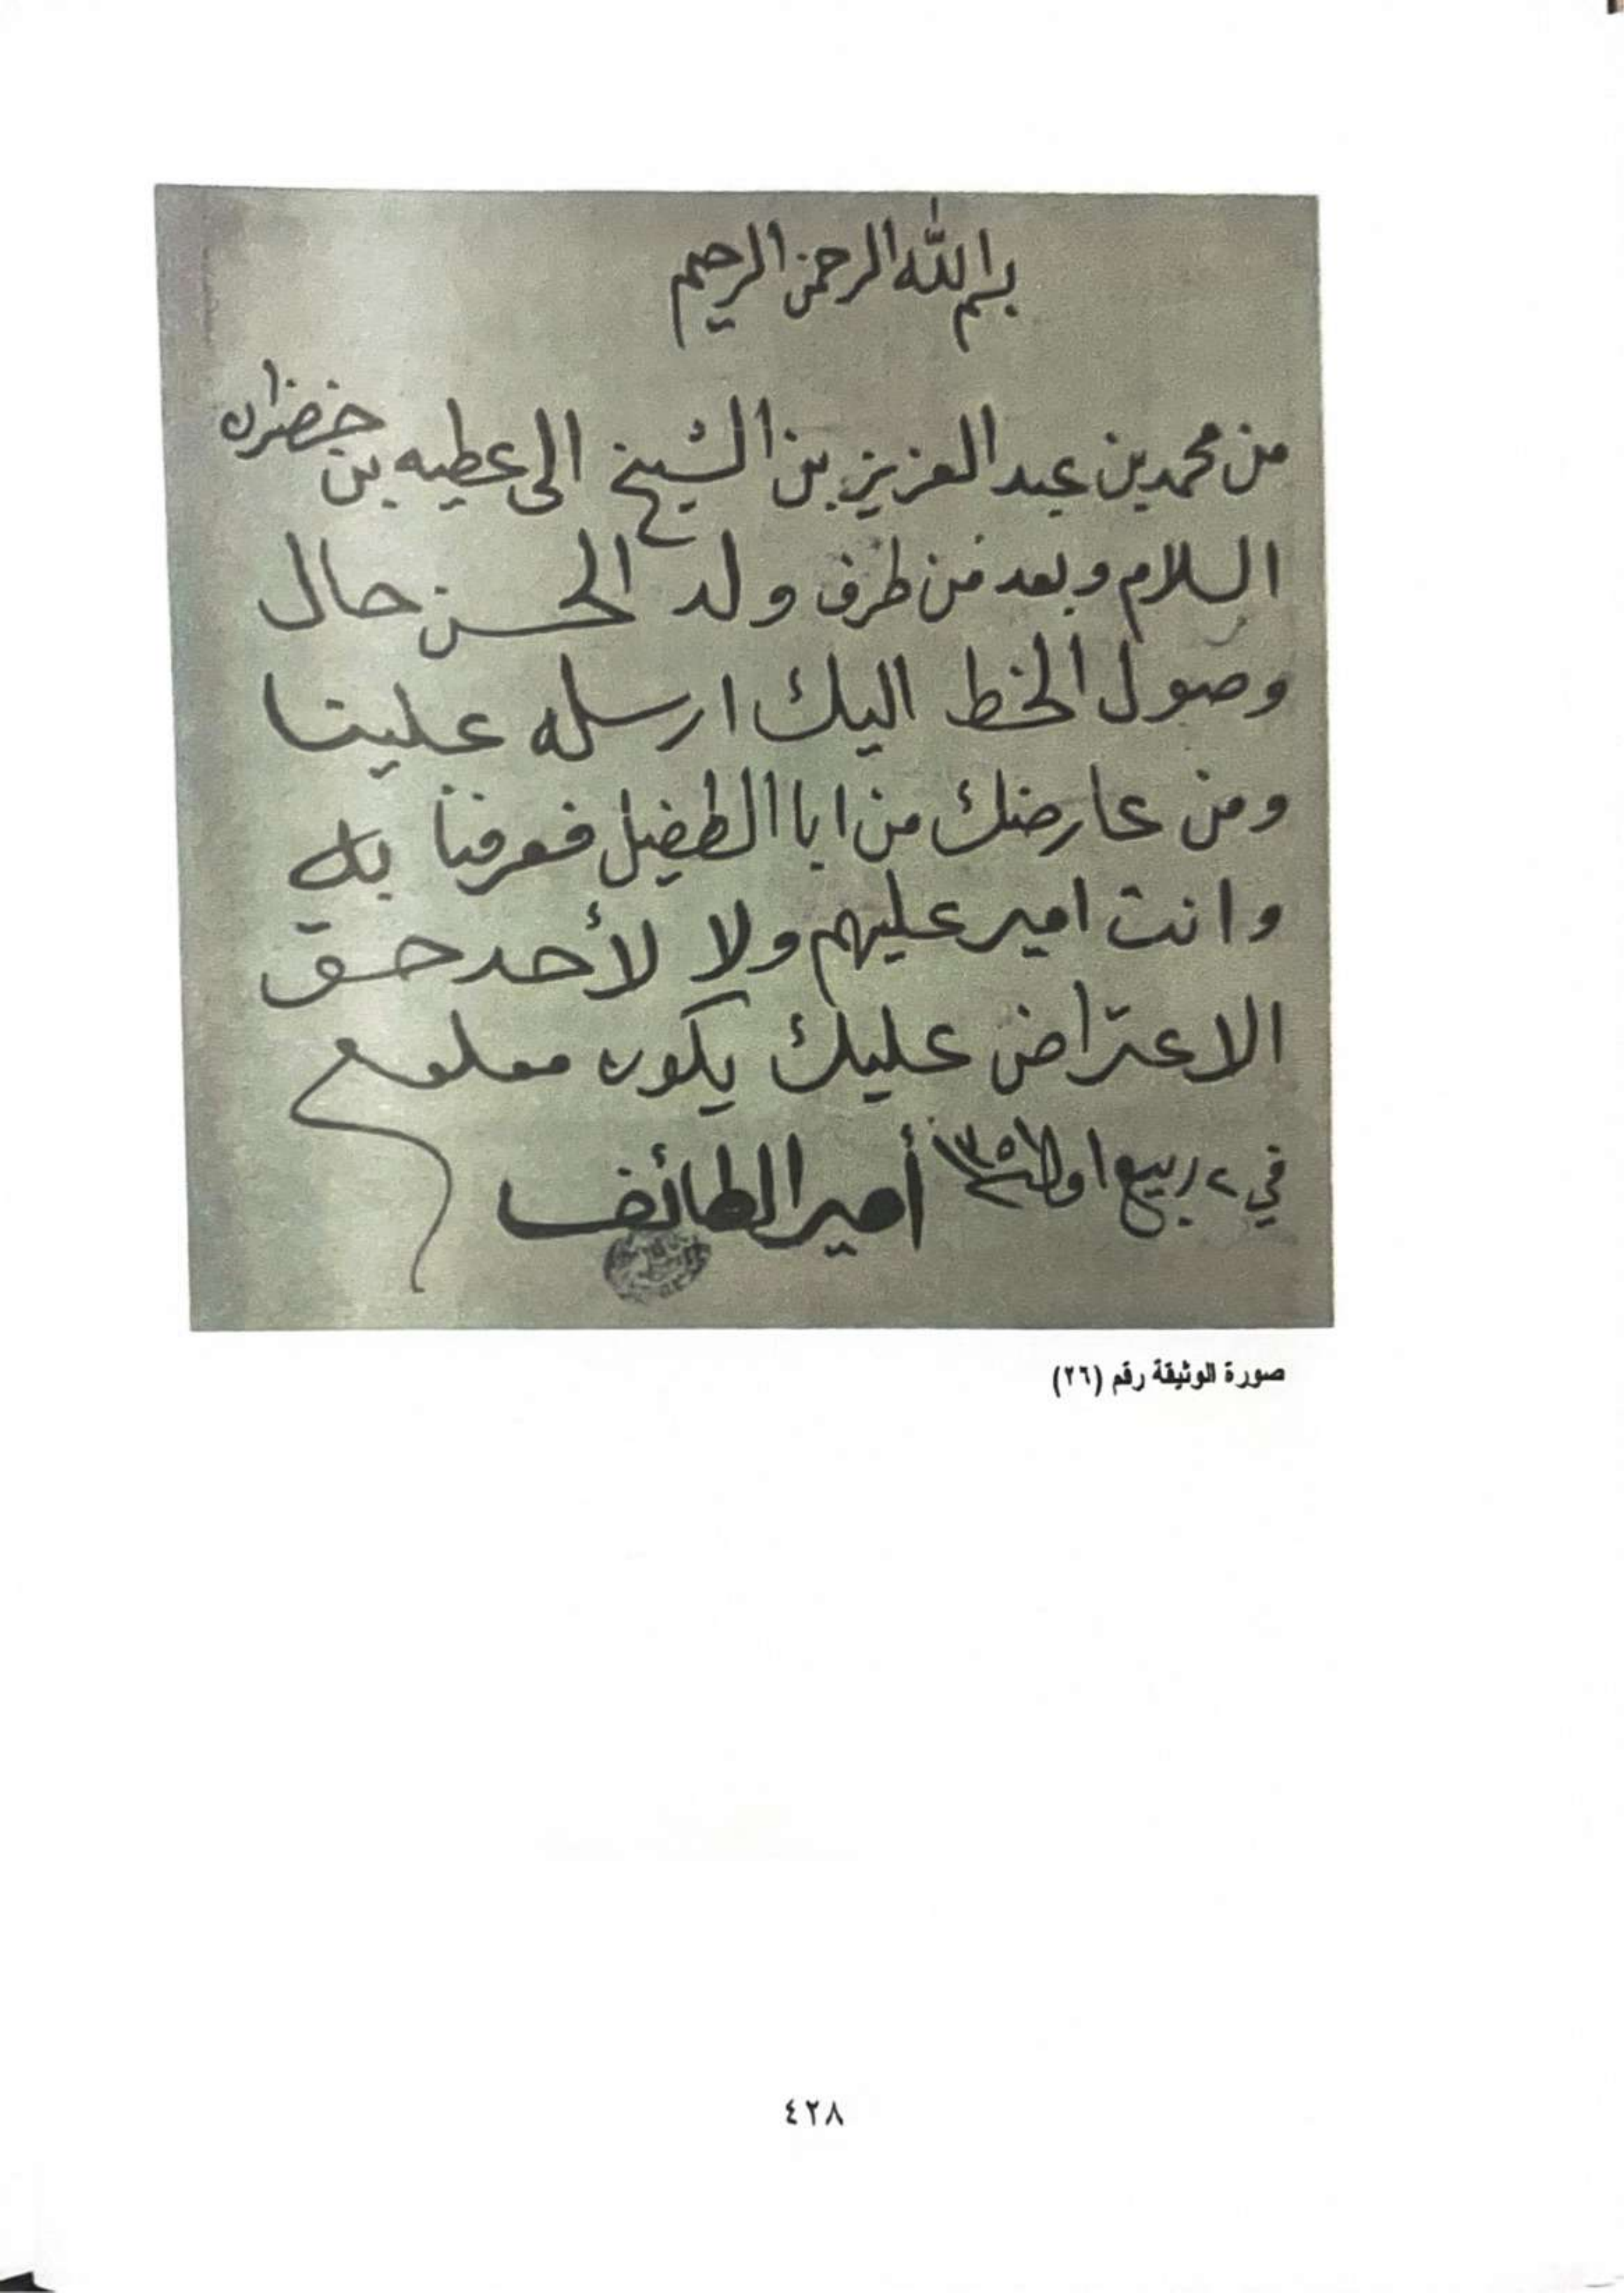 بسم الله الرحمن الرحيم
من محمد بن عبد العزيز بن الشيخ الى عطيه بن خضران
السلام وبعد فمن طرف ولد الحسن حال
وصول الخط اليك ارسله علينا
ومن عارضك من ابا الطفيل فعرفنا به
وانت امير عليهم ولا لأحد حق
الاعتراض عليك يكون معلوم
في ٢ ربيع اول أمير الطائف
صورة الوثيقة رقم (٢٦)
٤٢٨